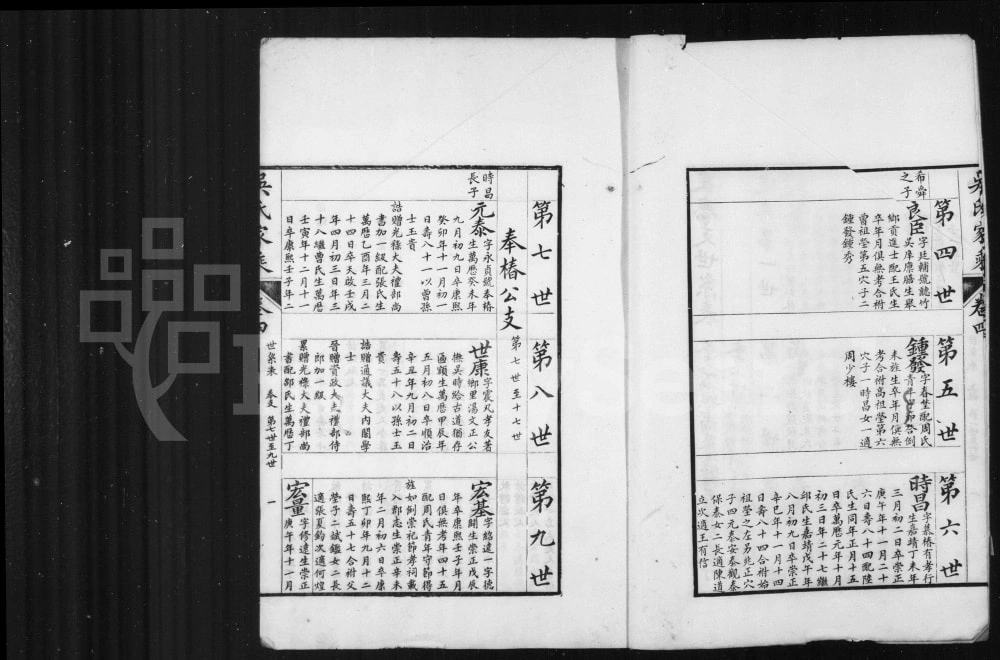 吳氏家乘
卷四
第四世
第五世
第六世
希舜
之子
良臣
字廷輔號聽竹
吳庠廩膳生舉
鄉貢進士配王氏生
卒年月俱無考合祔
曾祖塋第五穴子二
鍾發鍾秀
鍾發
字春埜配周氏
青年
未旌生卒年月俱無
考合祔高祖塋第六
穴子一時昌女一適
周少樓
時昌
字慕椿有孝行
生嘉靖丁未年
三月初二日卒崇正
庚午年十一月二十
六日壽八十四配陸
氏生同年正月十五
日卒萬曆元年十月
初三日年二十七繼
邱氏生嘉靖戊午年
八月初九日卒崇正
辛巳年十一月十四
日壽八十四合祔始
祖塋之左另兆正穴
子四元泰安泰觀泰
保泰女二長適陳道
立次適王有信
第七世
第八世
第九世
奉椿公支
第七世至十七世
時昌
長子
元泰
字永貞號奉椿
生萬曆癸未年
九月初九日卒康熙
癸卯年十一月初一
日壽八十一以曾孫
士玉貴
誥贈光祿大夫禮部尚
書加一級配張氏生
萬曆乙酉年三月二
十四日卒天啟壬戌
年四月初三日年三
十八繼曹氏生萬曆
壬寅年十二月十一
日卒康熙壬子年二
世康
字震凡孝友著
鄉里湯文正公
撫吳時給古道猶存
匾額生萬曆甲辰年
五月初八日卒順治
辛丑年九月初二日
壽五十八以孫士玉
貴
誥贈通議大夫內閣學
士
晉贈資政大夫禮部侍
郎加一級
累贈光祿大夫禮部尚
書配鄒氏生萬曆丁
宏基
字紹遠一字德
闇生崇正戊辰
年卒康熙壬子年月
日俱無考年四十五
配周氏青年守節得
旌如例崇祀節孝祠載
入郡志生崇正辛未
年二月初六日卒康
熙丁卯年九月十二
日壽五十七合祔父
塋子二試鑑女二長
適張夏鈞次適何煌
宏量
字修遠生崇正
庚午年十一月
吳氏家乘
卷四
世系表
奉支
第七世至九世
一